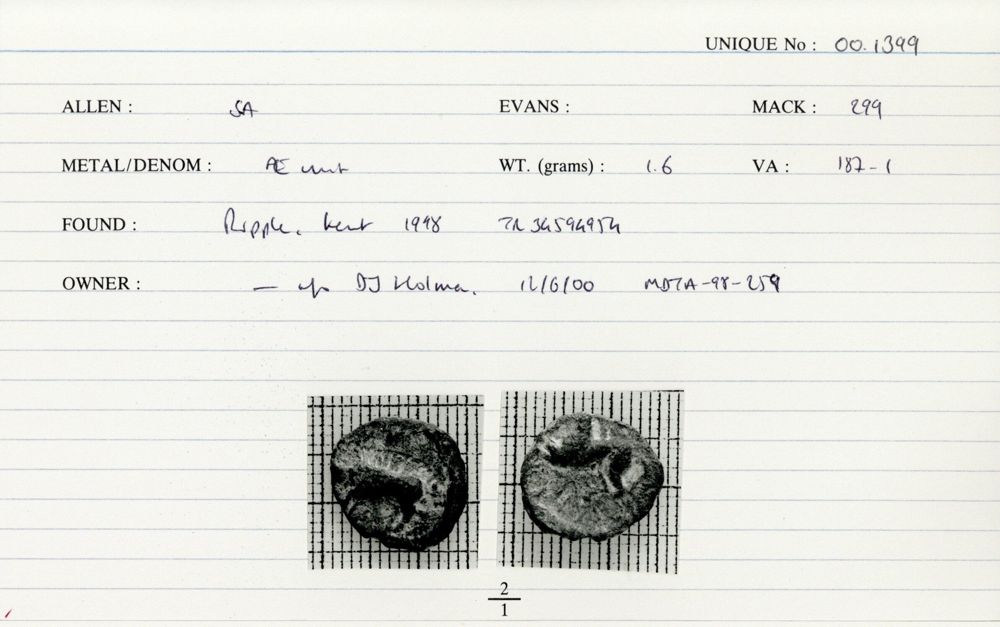 UNIQUE No : 00.1399
ALLEN : SA EVANS : MACK : 299
METAL/DENOM : AE unit WT. (grams) : 1.6 VA : 187-1
FOUND : Ripple, Kent 1998 TR 34594954
OWNER : — DJ Holman. 12/6/00 MDTA-98-259
2
1